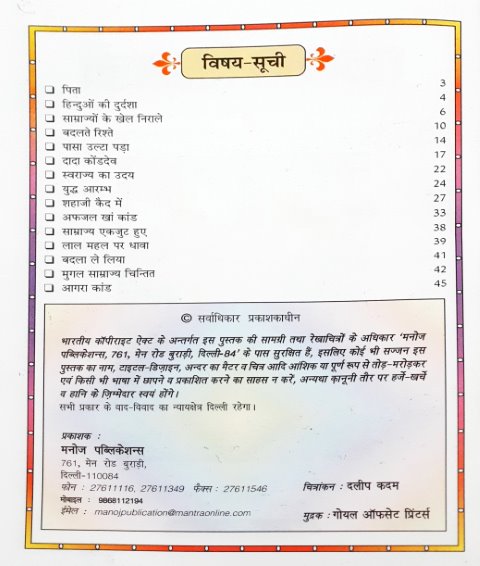 विषय-सूची
❑ पिता 3
❑ हिन्दुओं की दुर्दशा 4
❑ साम्राज्यों के खेल निराले 6
❑ बदलते रिश्ते 10
❑ पासा उल्टा पड़ा 14
❑ दादा कोंडदेव 17
❑ स्वराज्य का उदय 22
❑ युद्ध आरम्भ 24
❑ शहाजी कैद में 27
❑ अफजल खां कांड 33
❑ साम्राज्य एकजुट हुए 38
❑ लाल महल पर धावा 39
❑ बदला ले लिया 41
❑ मुगल साम्राज्य चिन्तित 42
❑ आगरा कांड 45
© सर्वाधिकार प्रकाशकाधीन
भारतीय कॉपीराइट ऐक्ट के अन्तर्गत इस पुस्तक की सामग्री तथा रेखाचित्रों के अधिकार 'मनोज
पब्लिकेशन्स, 761, मेन रोड बुराड़ी, दिल्ली-84' के पास सुरक्षित हैं, इसलिए कोई भी सज्जन इस
पुस्तक का नाम, टाइटल-डिज़ाइन, अन्दर का मैटर व चित्र आदि आंशिक या पूर्ण रूप से तोड़-मरोड़कर
एवं किसी भी भाषा में छापने व प्रकाशित करने का साहस न करें, अन्यथा क़ानूनी तौर पर हर्जे-खर्चे
व हानि के ज़िम्मेदार स्वयं होंगे।
सभी प्रकार के वाद-विवाद का न्यायक्षेत्र दिल्ली रहेगा।
प्रकाशक :
मनोज पब्लिकेशन्स
761, मेन रोड बुराड़ी,
दिल्ली-110084
फोन : 27611116, 27611349 फैक्स : 27611546
मोबाइल : 9868112194
ईमेल : manojpublication@mantraonline.com
चित्रांकन : दलीप कदम
मुद्रक : गोयल ऑफसेट प्रिंटर्स